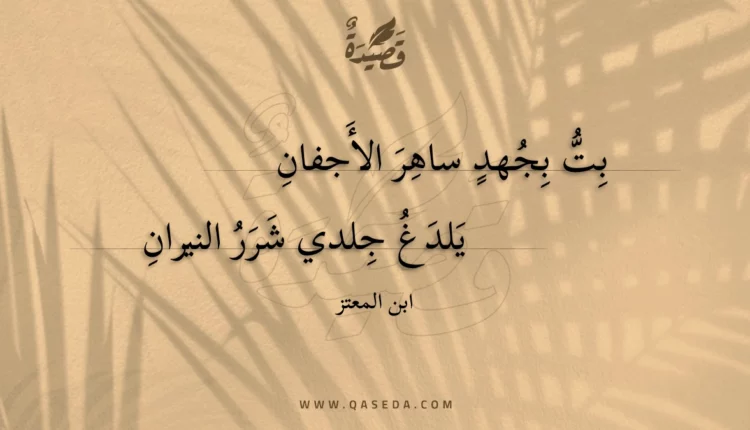 قَصِيْدَةٌ
بِتُّ بِجُهدٍ ساهِرَ الأَجفانِ
يَلدَغُ جِلدي شَرَرُ النيرانِ
ابن المعتز
WWW.QASEDA.COM